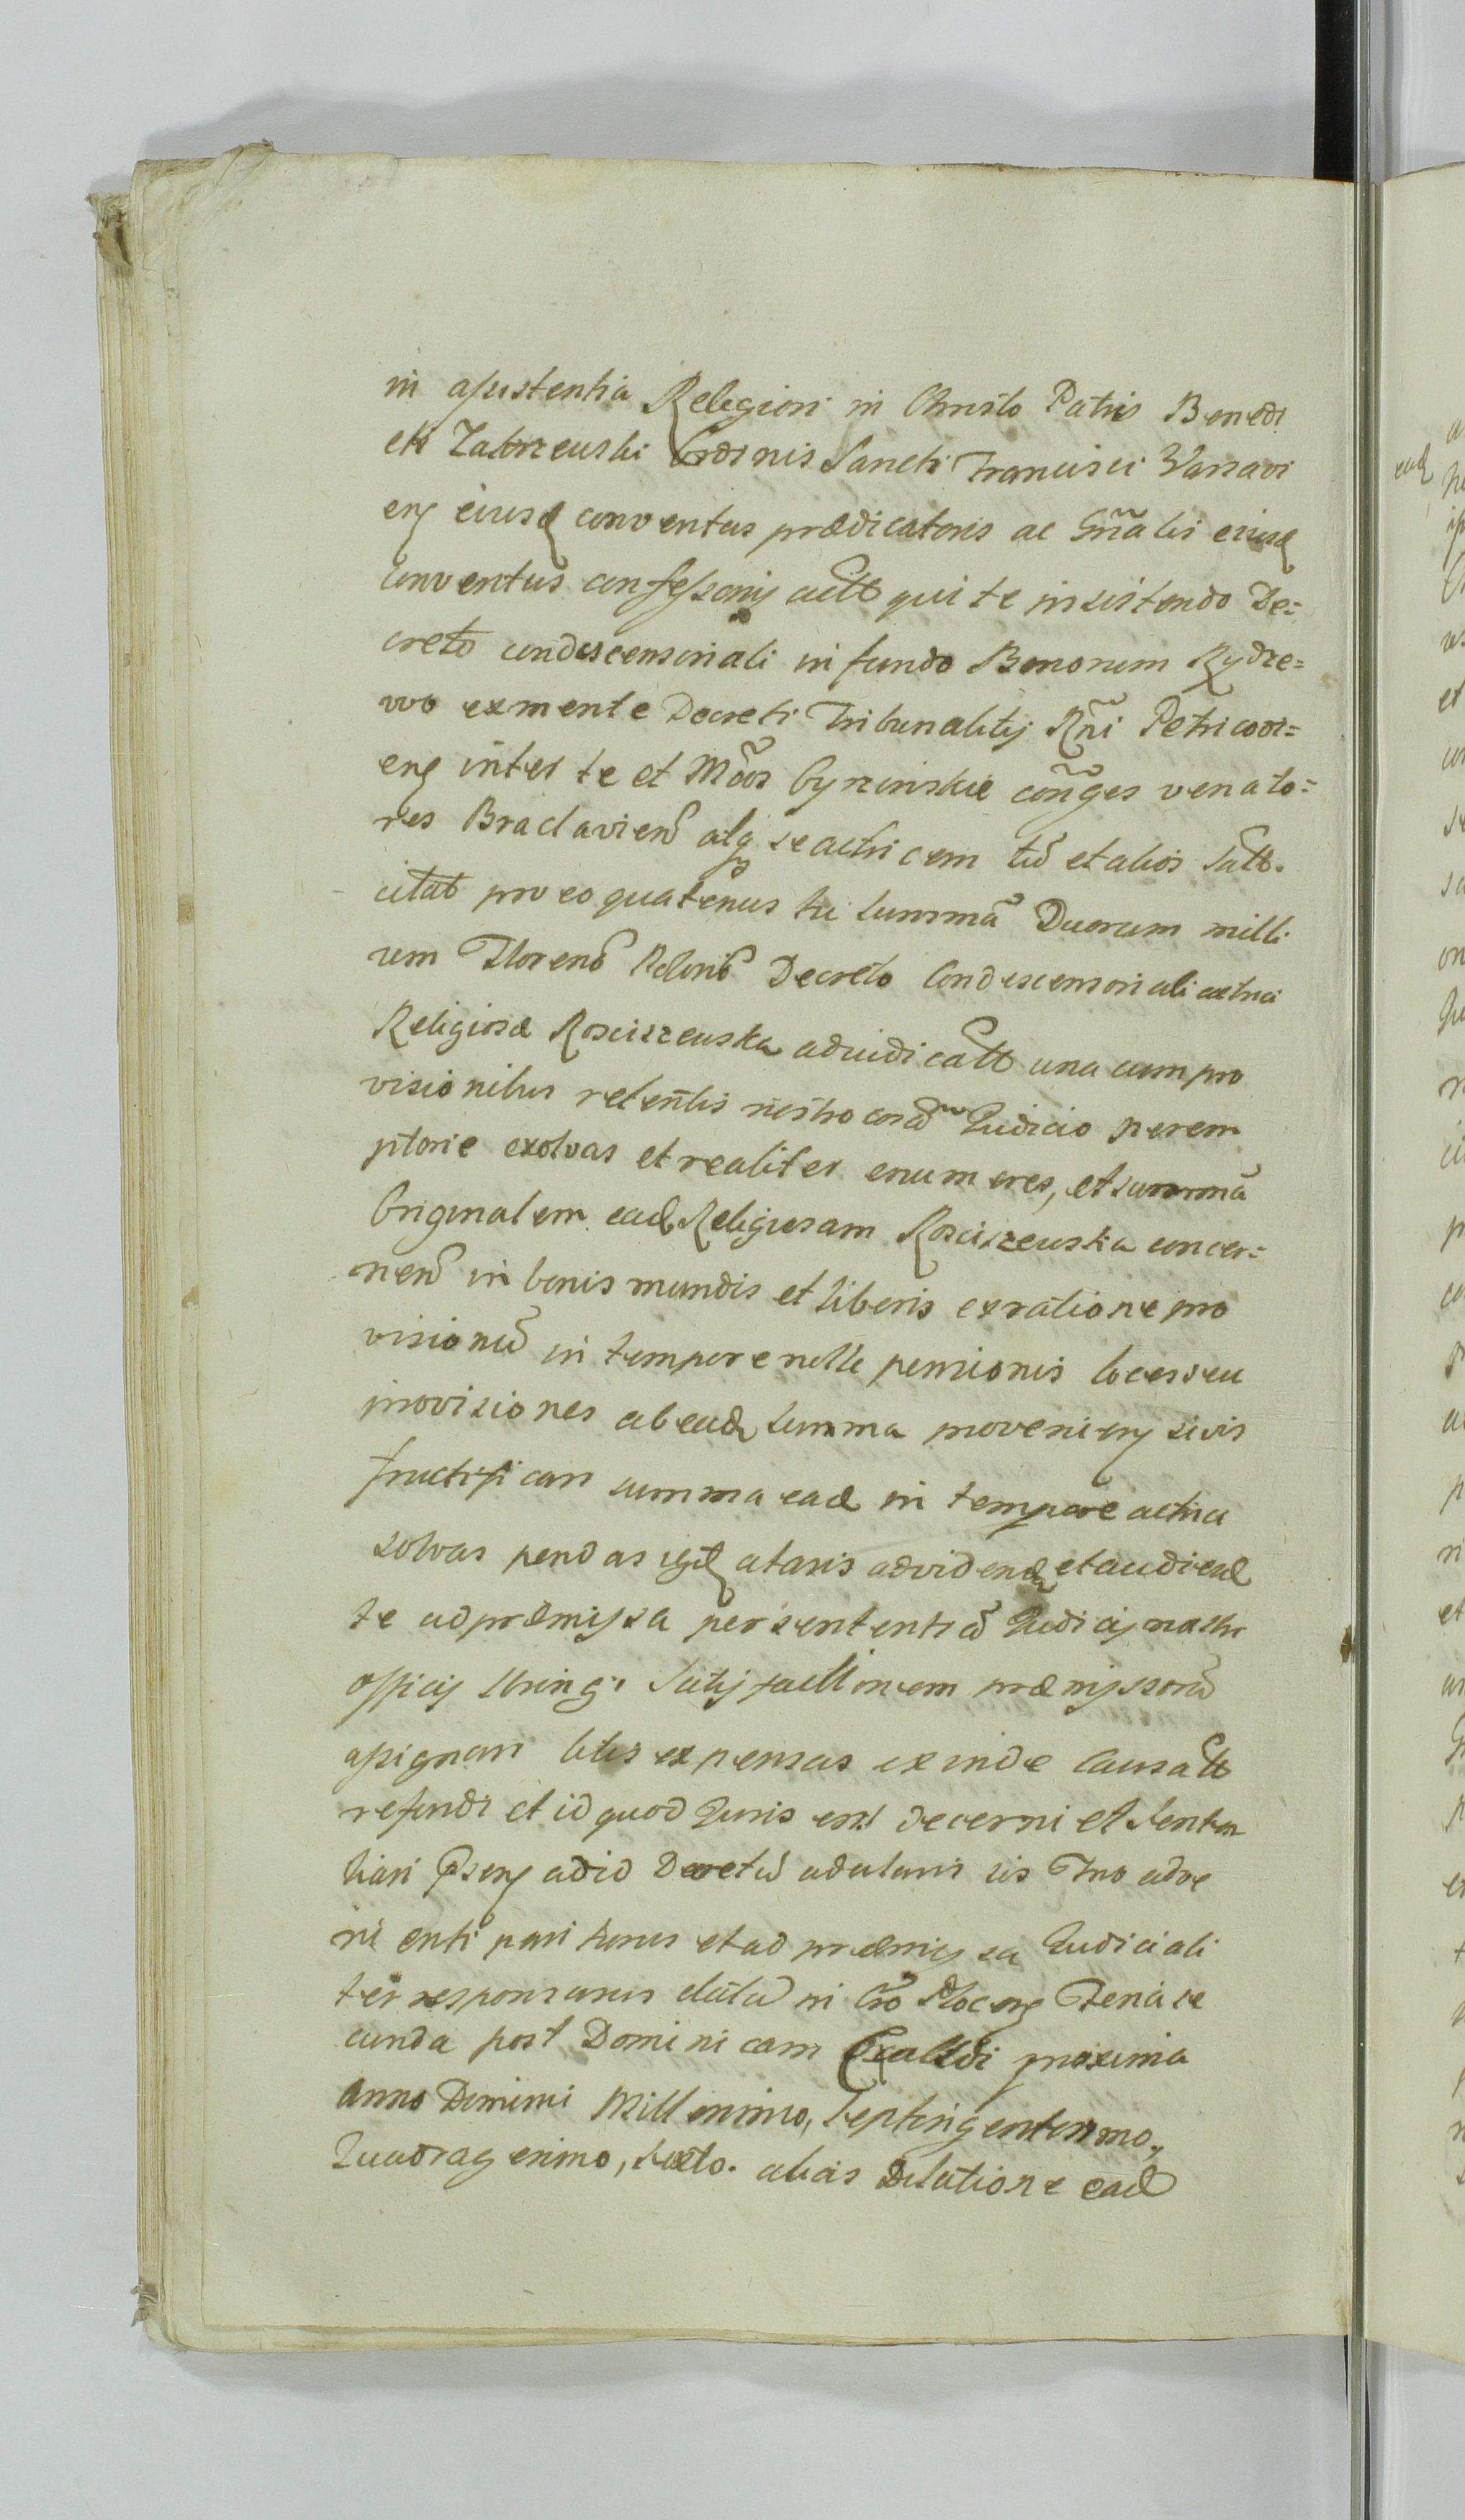 in assistentia Religiosi in Christo Patris Benedi
cti Zabrzeuski Ordinis Sancti Francisci Varsavi
eñ eiusd conventus prædicatoris ac Gñalis eiusd
conventus confessarij actt qui te insistendo De=
creto condescensoriali in fundo Bonorum Rydze=
wo ex mente Decreti Tribunalitij Rñi Petricovi=
eñ inter te et Mõos conges venato=
res Braclavieñ atq se actricem tũ et alios
citat pro eo quatenus tu summã Duorum milli
um Florenõ Poloniõ Decreto Condescensoriali actrici
Religiosæ Rosciszeuska adiudicatt una cum pro
visionibus retentis nostro corã Judicio perem
ptorie exolvas et realiter enumeres, et summã
Originalem ead Religiosam Rosciszeuska concer=
neñ in bonis mundis et liberis ex ratione pro
visionũ in tempore pensionis loces seu
provisiones ab ead summa provenieñ sivis
fructificari summa ead in tempore actrici
solvas pendas ataris ad videnda et audiend
te ad præmissa per sententiã Judicij nostri
officij string: Satisfactionem præmissorũ
assignari litis expensas exinde causatt
refundi et id quod Juris erit decerni et senten
tiari Pseñ ad id Decretũ adulaturis sis Tno adve
nienti pariturus et ad præmissa Judiciali
ter responsurus datũ in Cro Ploceñ Feria se
cunda post Dominicam Exaudi proxima
Anno Domini Millesimo, Septingentesimo,
Quadragesimo, sexto. alias Dilatione ead